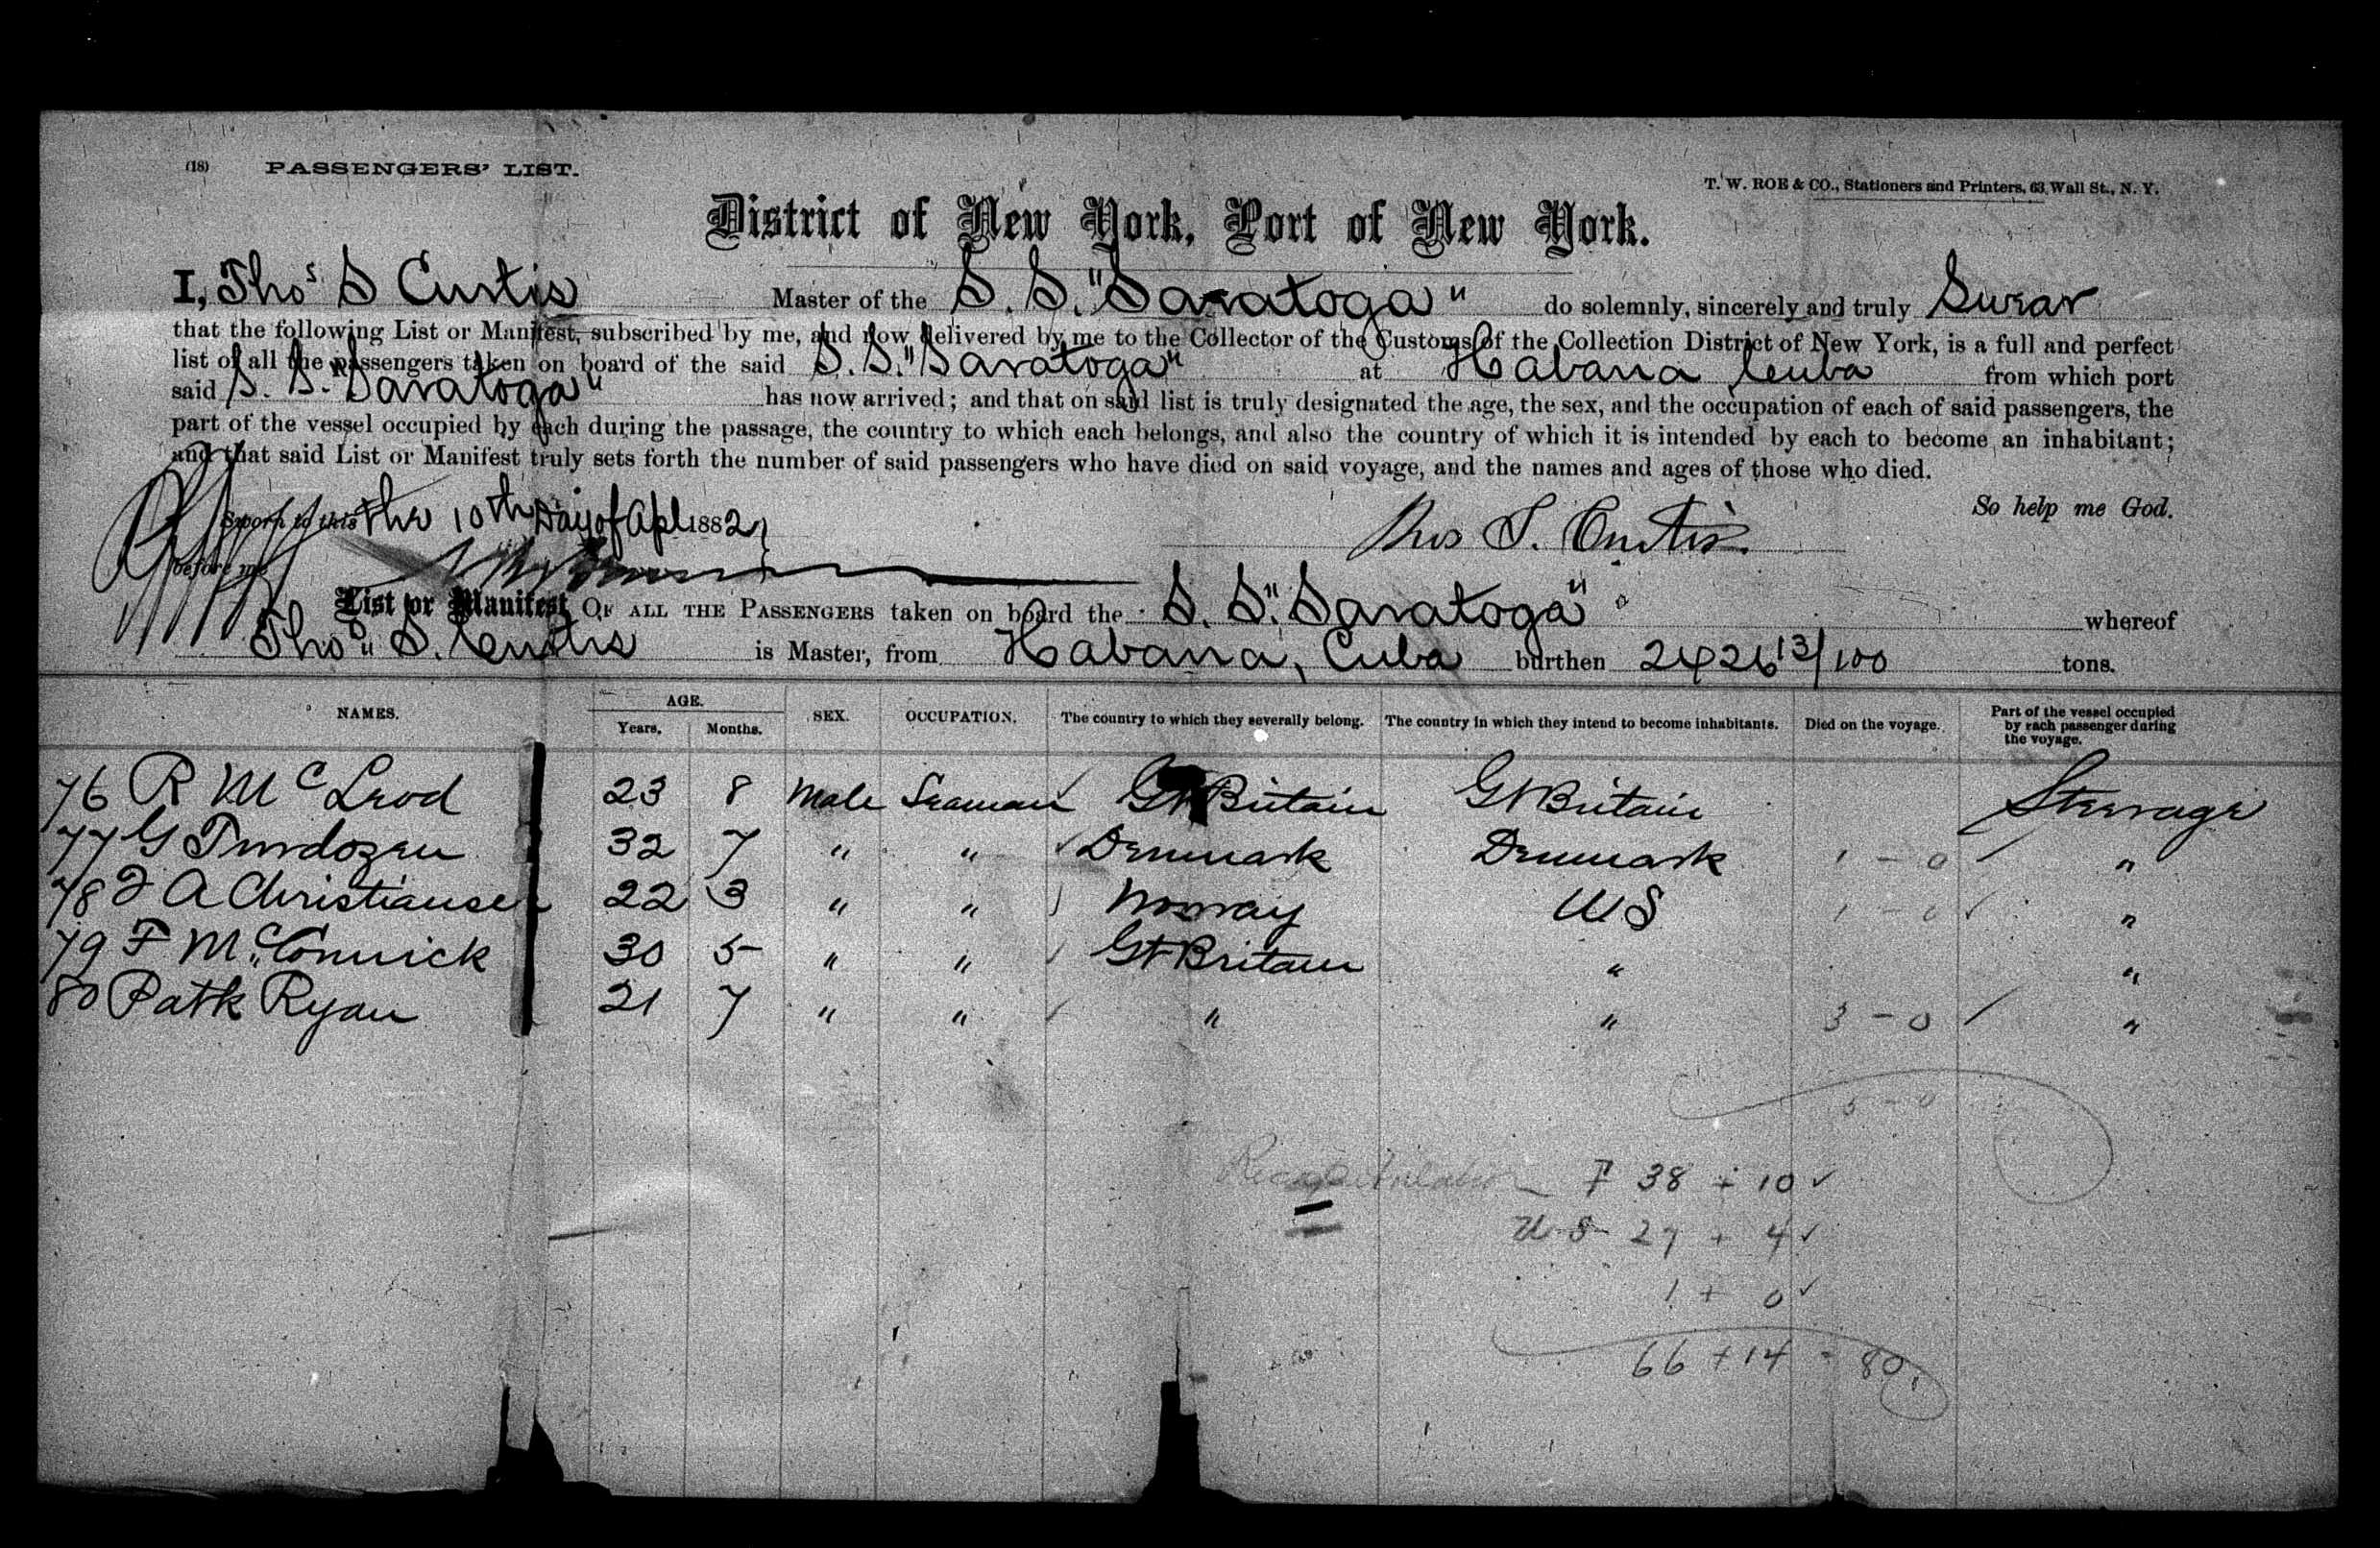 (18) PASSENGERS' LIST.
T. W. ROE & CO., Stationers and Printers, 63 Wall St., N. Y.
District of New York, Port of New York.
I, Thos S Curtis Master of the S. S. "Saratoga" do solemnly, sincerely and truly Swear
that the following List or Manifest, subscribed by me, and now delivered by me to the Collector of the Customs of the Collection District of New York, is a full and perfect
list of all the passengers taken on board of the said S. S. "Saratoga" at Habana Cuba from which port
said S. S. "Saratoga" has now arrived; and that on said list is truly designated the age, the sex, and the occupation of each of said passengers, the
part of the vessel occupied by each during the passage, the country to which each belongs, and also the country of which it is intended by each to become an inhabitant;
and that said List or Manifest truly sets forth the number of said passengers who have died on said voyage, and the names and ages of those who died.
So help me God.
Sworn to this the 10th Day of Apl 1882
Thos S. Curtis.
before me
List or Manifest OF ALL THE PASSENGERS taken on board the S. S. "Saratoga" whereof
Thos S. Curtis is Master, from Habana, Cuba burthen 2426 13/100 tons.
NAMES. AGE. Years. Months. SEX. OCCUPATION. The country to which they severally belong. The country in which they intend to become inhabitants. Died on the voyage. Part of the vessel occupied by each passenger during the voyage.
76 R McLeod 23 8 Male Seaman Gt Britain Gt Britain Steerage
77 G 32 7 " " Denmark Denmark 1 - 0 "
78 A Christiansen 22 3 " " Norway U S 1 - 0 "
79 F McConnick 30 5 " " Gt Britain " "
80 Patk Ryan 21 7 " " " " 3 - 0 "
5 - 0
Recapitulation F 38 + 10 ✓
U S 27 + 4 ✓
1 + 0 ✓
66 + 14 - 80